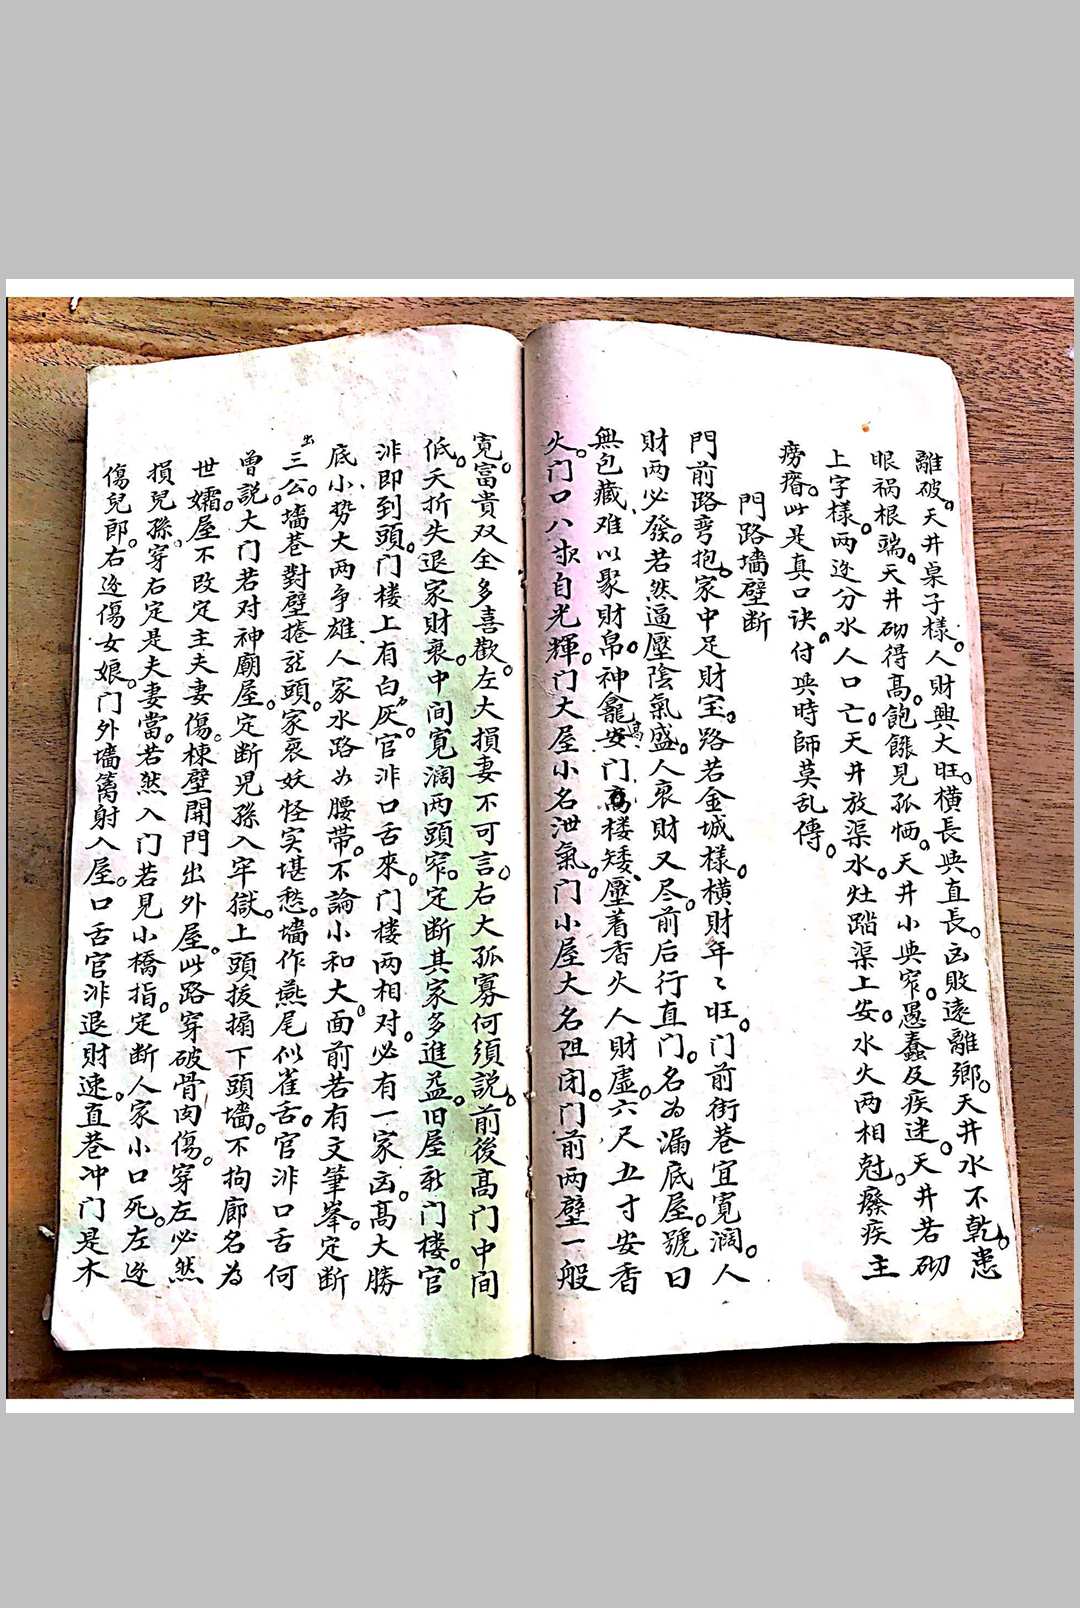 離破。天井桌子樣。人財興大旺。横長與直長。凶敗遠離鄉。天井水不乾。患
眼祸根端。天井砌得高。飽餓見孤恓。天井小與窄。愚蠢及疾迷。天井若砌
上字樣。两边分水人口亡。天井放渠水。灶踏渠上安。水火两相尅。癈疾主
痨瘠。此是真口诀。付與時師莫乱傳。
門路墙壁断
門前路弯抱。家中足財宝。路若金城樣。横財年〻旺。门前街巷宜寬濶。人
財两必發。若然逼壓陰氣盛。人衰財又尽。前后行直门。名为漏底屋。號曰
無包藏、难以聚財帛。神龕安高门高楼矮、壓着香火人財虛。六尺五寸安香
火。门口八尺自光輝。门大屋小名泄氣。门小屋大名阻闭。门前两壁一般
寛。富貴双全多喜歡。左大損妻不可言。右大孤寡何須説。前後高门中间
低。夭折失退家財衰。中间寬濶两頭窄。定断其家多進益。旧屋新门楼。官
非即到頭。门楼上有白灰。官非口舌來。门楼两相对。必有一家凶。高大勝
底小、势大两争雄、人家水路如腰帶。不論小和大。面前若有文筆峯。定断
出三公。墙巷對壁捲龍頭。家衰妖怪实堪愁。墙作燕尾似雀舌。官非口舌何
曾説。大门若对神廟屋。定断児孫入牢獄。上頭拔搨下頭墙。不拘廊名为
世孀。屋不改定主夫妻傷。棟壁開門出外屋。此路穿破骨肉傷。穿左必然
損兒孫、穿右定是夫妻當。若然入门若見小橋指。定断人家小口死。左边
傷兒郎。右边傷女娘。门外墙篱射入屋。口舌官非退財速。直巷冲门是木